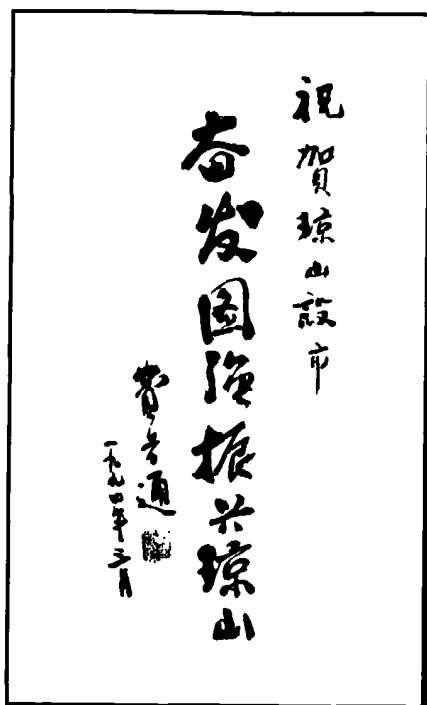 祝賀琼山設市
奋发图强振兴琼山
費孝通
一九九四年三月